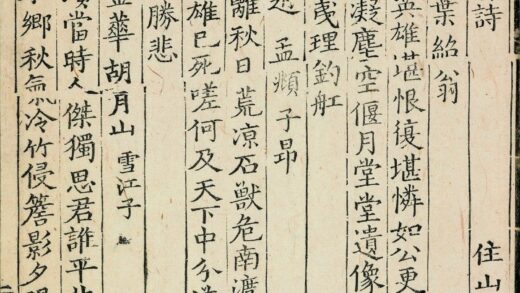 詩 住山
葉紹翁
英雄堪恨復堪憐如公更
凝塵空偃月堂堂遺像
夷理釣舡
孟頫子昂
離秋日荒凉石獸危南渡
雄已死嗟何及天下中分
勝悲
金華胡月山 雪江子
當時人傑獨思君誰平
鄉秋氣冷竹侵簷影夕